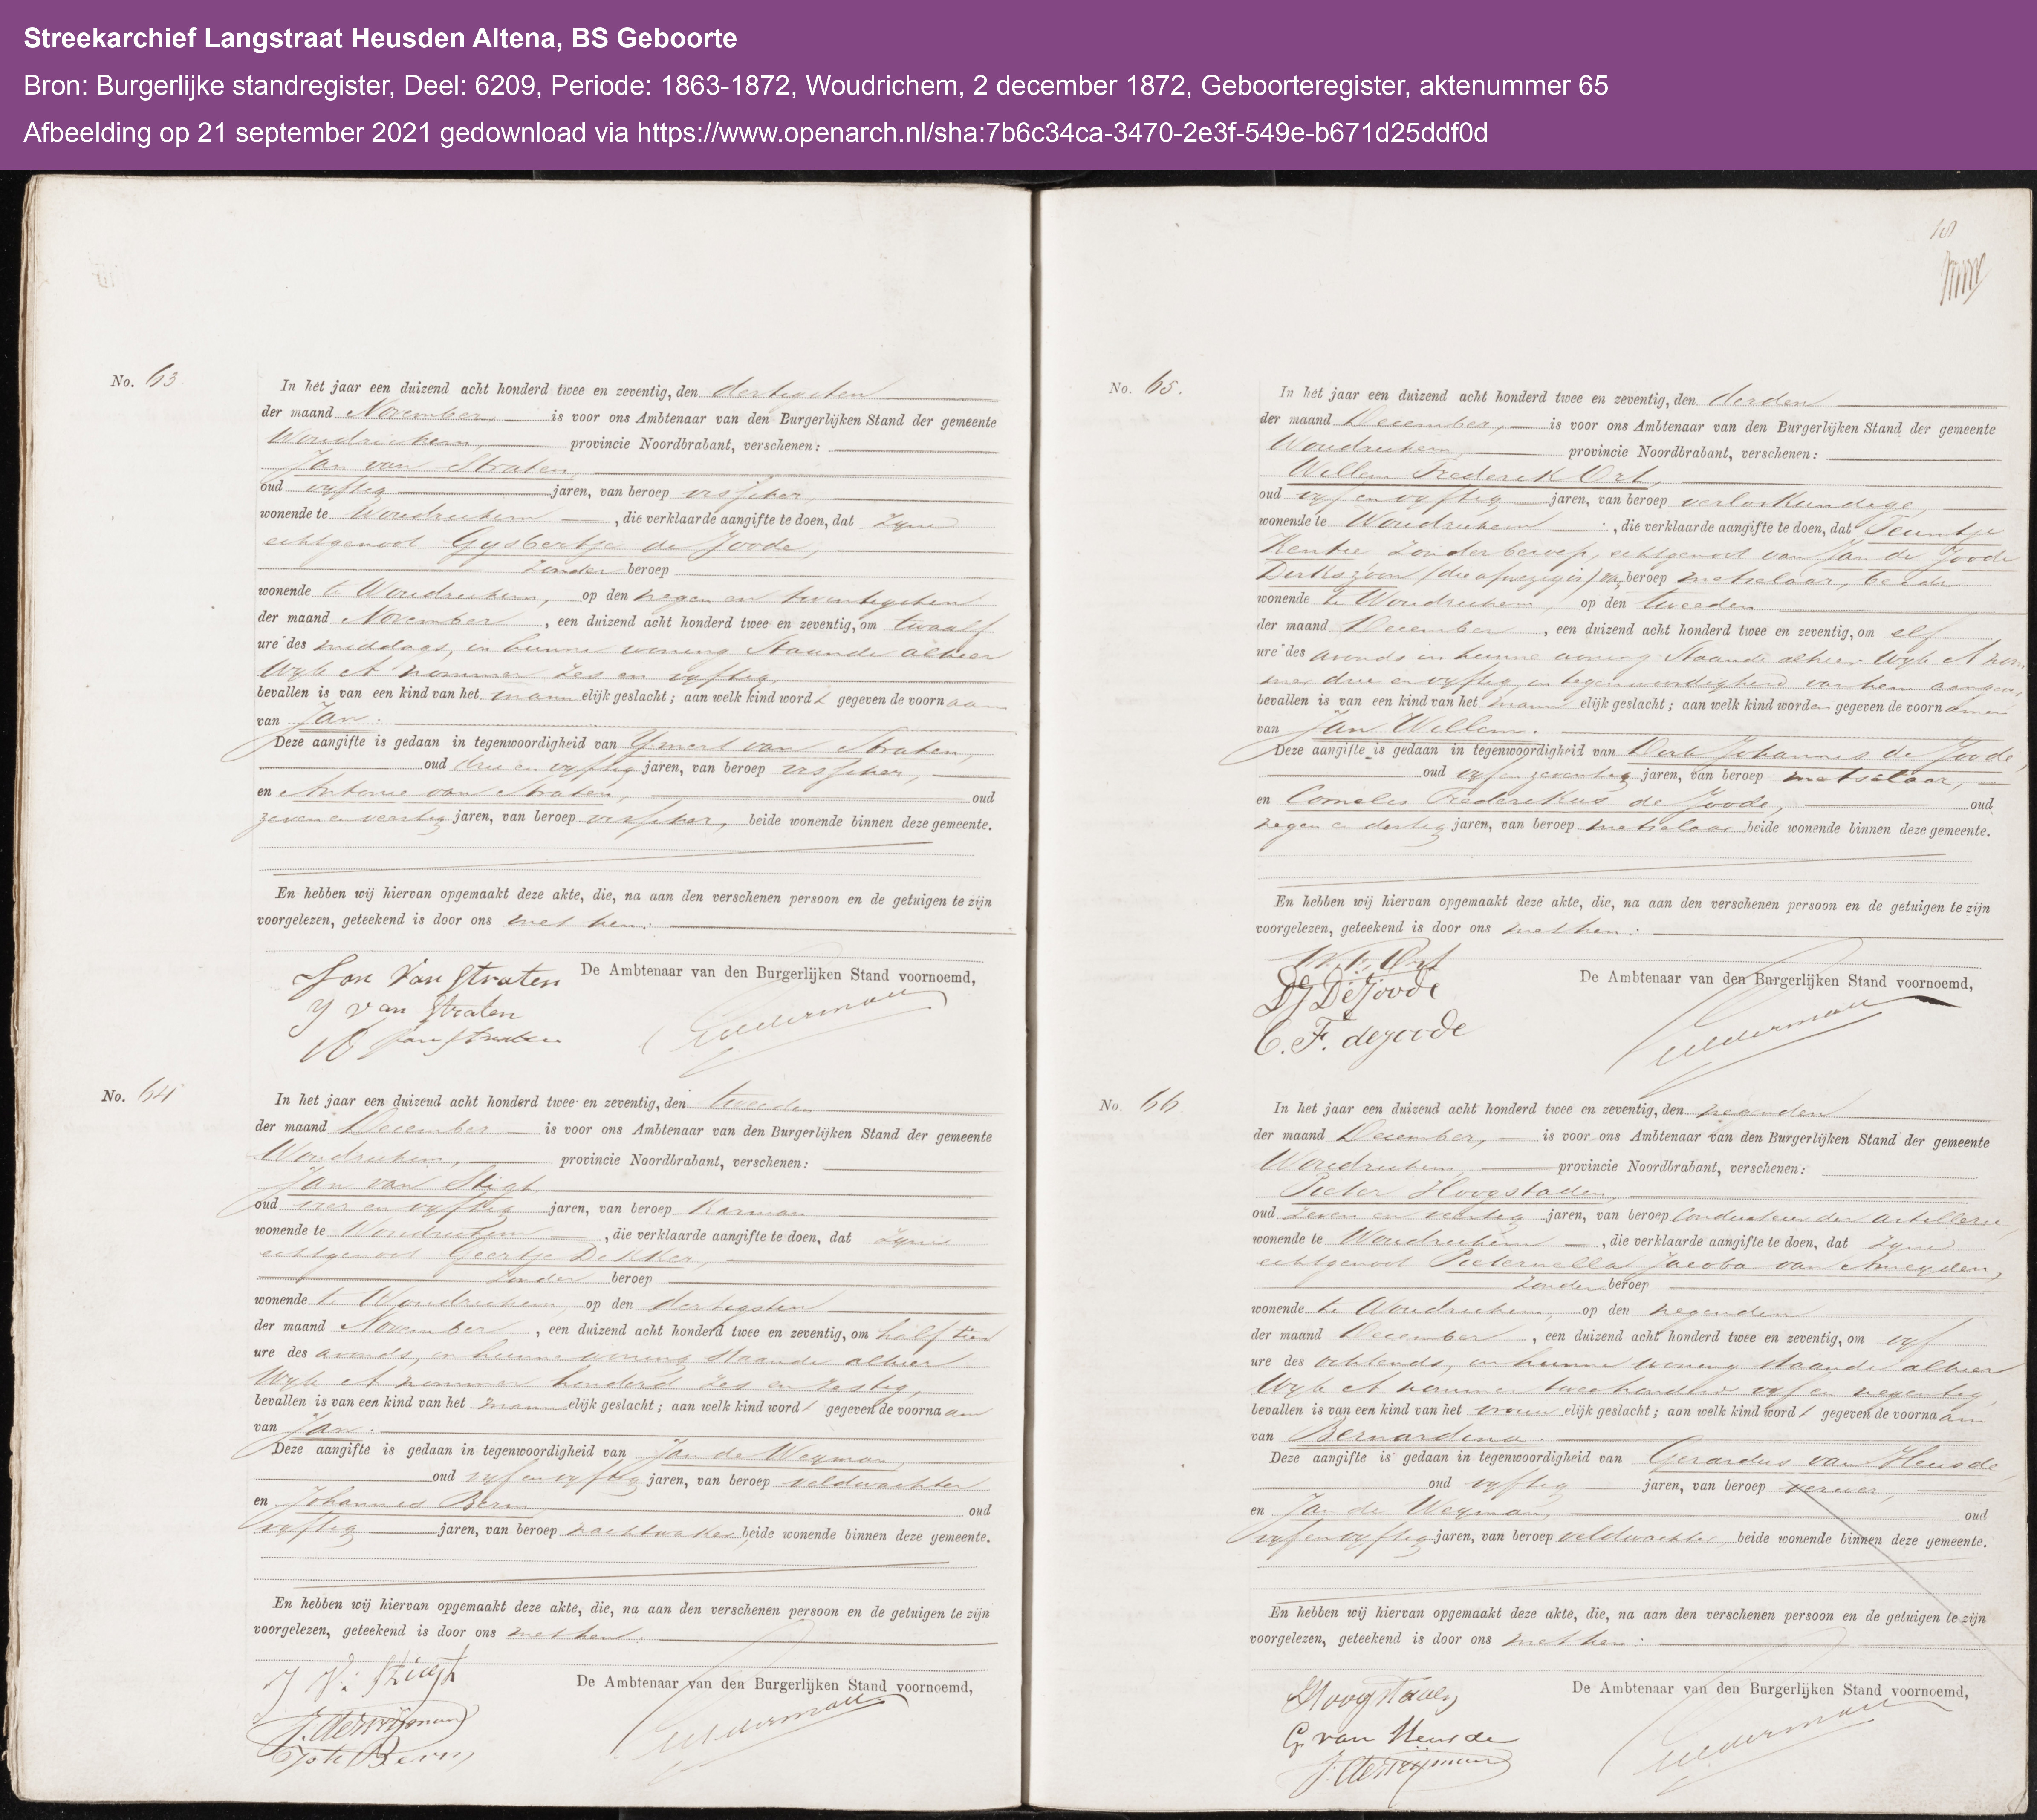 Streekarchief Langstraat Heusden Altena, BS Geboorte
Bron: Burgerlijke standregister, Deel: 6209, Periode: 1863-1872, Woudrichem, 2 december 1872, Geboorteregister, aktenummer 65
Afbeelding op 21 september 2021 gedownload via https://www.openarch.nl/sha:7b6c34ca-3470-2e3f-549e-b671d25ddf0d
No. 63
In het jaar een duizend acht honderd twee en zeventig, den dertigsten
der maand November, is voor ons Ambtenaar van den Burgerlijken Stand der gemeente
Woudrichem, provincie Noordbrabant, verschenen:
Jan van Straten,
oud vyftig jaren, van beroep visscher,
wonende te Woudrichem, die verklaarde aangifte te doen, dat zyne
echtgenoot Gysbertje de Joode,
zonder beroep
wonende te Woudrichem, op den negen en twintigsten
der maand November, een duizend acht honderd twee en zeventig, om twaalf
ure des middags, in hunne woning staande alhier
Wyk A nommer zes en vyftig,
bevallen is van een kind van het mannelijk geslacht; aan welk kind wordt gegeven de voornaam
van Jan.
Deze aangifte is gedaan in tegenwoordigheid van Ymert van Straten,
oud drie en vyftig jaren, van beroep visscher,
en Antonie van Straten, oud
zeven en veertig jaren, van beroep visscher, beide wonende binnen deze gemeente.
En hebben wij hiervan opgemaakt deze akte, die, na aan den verschenen persoon en de getuigen te zijn
voorgelezen, geteekend is door ons met hen.
Jan van Straten De Ambtenaar van den Burgerlijken Stand voornoemd,
Y van Straten
A van Straten
No. 64
In het jaar een duizend acht honderd twee en zeventig, den tweeden
der maand December is voor ons Ambtenaar van den Burgerlijken Stand der gemeente
Woudrichem, provincie Noordbrabant, verschenen:
Jan van Stigt
oud vier en vyftig jaren, van beroep Karman
wonende te Woudrichem, die verklaarde aangifte te doen, dat zyne
echtgenoot Geertje Dekker,
zonder beroep
wonende te Woudrichem, op den dertigsten
der maand November, een duizend acht honderd twee en zeventig, om half tien
ure des avonds, in hunne woning staande alhier
Wyk A nommer honderd zes en zestig,
bevallen is van een kind van het mannelijk geslacht; aan welk kind wordt gegeven de voornaam
van Jan.
Deze aangifte is gedaan in tegenwoordigheid van Jan de Weyman,
oud vyf en vyftig jaren, van beroep veldwachter
en Johannes Berm oud
vyftig jaren, van beroep nachtwaker, beide wonende binnen deze gemeente.
En hebben wij hiervan opgemaakt deze akte, die, na aan den verschenen persoon en de getuigen te zijn
voorgelezen, geteekend is door ons met hen.
De Ambtenaar van den Burgerlijken Stand voornoemd,
No. 65.
In het jaar een duizend acht honderd twee en zeventig, den derden
der maand December, is voor ons Ambtenaar van den Burgerlijken Stand der gemeente
Woudrichem, provincie Noordbrabant, verschenen:
Willem Frederik Ort,
oud vyf en vyftig jaren, van beroep verloskundige,
wonende te Woudrichem, die verklaarde aangifte te doen, dat Teuntje
Kentie zonder beroep, echtgenoot van Jan de Joode
Dirkszoon (die afwezig is) van beroep metselaar, beide
wonende te Woudrichem, op den tweeden
der maand December, een duizend acht honderd twee en zeventig, om elf
ure des avonds in hunne woning staande alhier Wyk A nom
mer drie en vyftig, in tegenwoordigheid van hem aangever,
bevallen is van een kind van het mannelijk geslacht; aan welk kind worden gegeven de voornamen
van Jan Willem.
Deze aangifte is gedaan in tegenwoordigheid van Derk Johannes de Joode,
oud vyf en zeventig jaren, van beroep metselaar,
en Cornelis Frederikus de Joode, oud
negen en dertig jaren, van beroep metselaar beide wonende binnen deze gemeente.
En hebben wij hiervan opgemaakt deze akte, die, na aan den verschenen persoon en de getuigen te zijn
voorgelezen, geteekend is door ons met hen.
W. F. Ort
DJ De Joode De Ambtenaar van den Burgerlijken Stand voornoemd,
C. F. de Joode
No. 66
In het jaar een duizend acht honderd twee en zeventig, den negenden
der maand December, is voor ons Ambtenaar van den Burgerlijken Stand der gemeente
Woudrichem, provincie Noordbrabant, verschenen:
Pieter Hoogstaden,
oud zeven en veertig jaren, van beroep Conducteur der artillerie,
wonende te Woudrichem, die verklaarde aangifte te doen, dat zyne
echtgenoot Pieternella Jacoba van Ameyden,
zonder beroep
wonende te Woudrichem, op den negenden
der maand December, een duizend acht honderd twee en zeventig, om vyf
ure des ochtends, in hunne woning staande alhier
Wyk A nommer twee honderd vyf en negentig,
bevallen is van een kind van het vrouwelijk geslacht; aan welk kind wordt gegeven de voornaam
van Bernardina.
Deze aangifte is gedaan in tegenwoordigheid van Gerardus van Heusde,
oud vyftig jaren, van beroep verwer,
en Jan de Weyman, oud
vyf en vyftig jaren, van beroep veldwachter, beide wonende binnen deze gemeente.
En hebben wij hiervan opgemaakt deze akte, die, na aan den verschenen persoon en de getuigen te zijn
voorgelezen, geteekend is door ons met hen.
De Ambtenaar van den Burgerlijken Stand voornoemd,
G. van Heusde